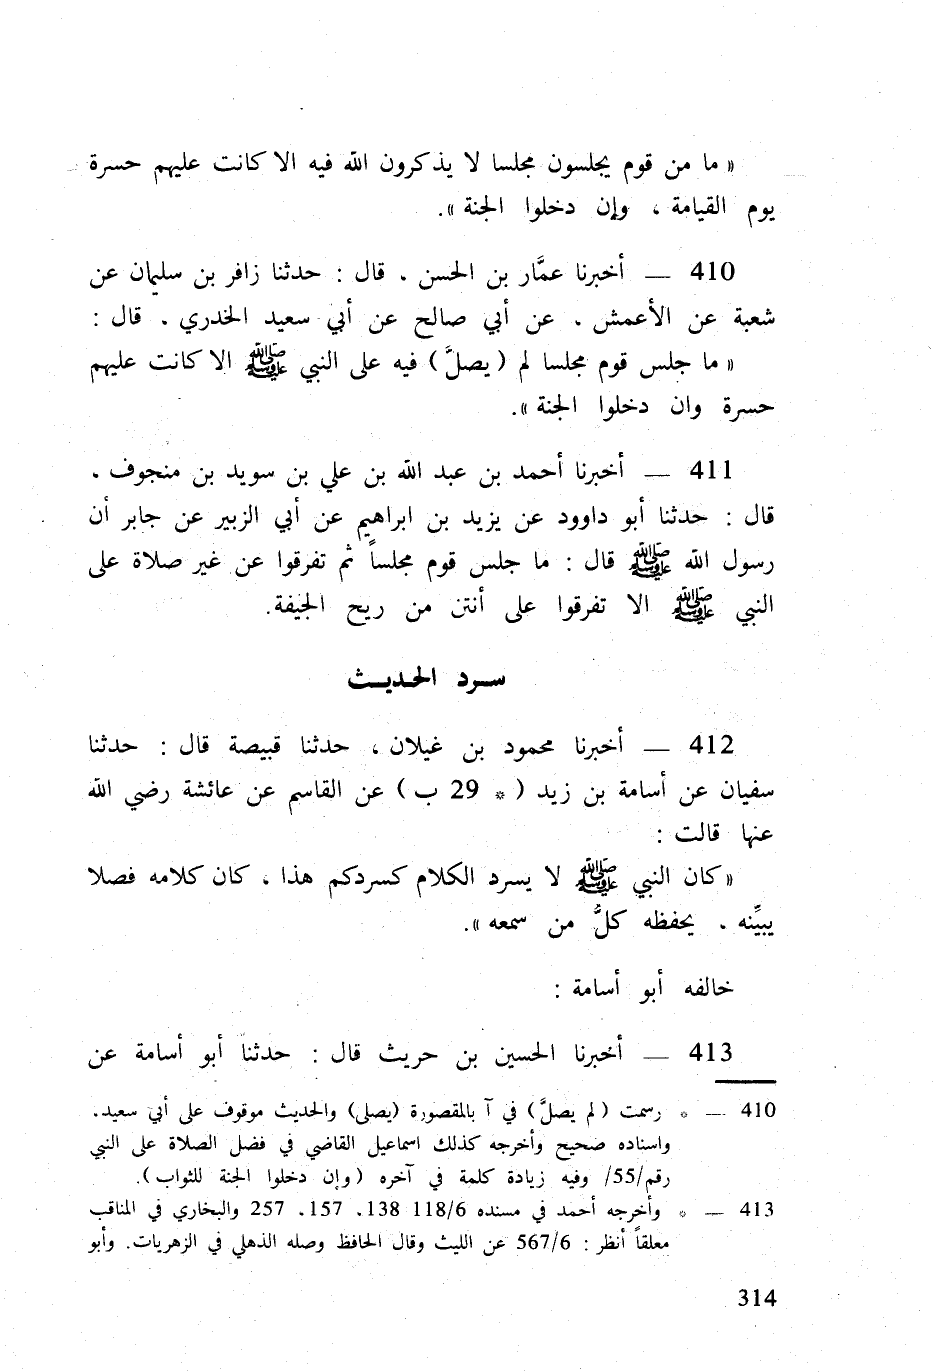 « ما من قوم يجلسون مجلسا لا يذكرون الله فيه الا كانت عليهم حسرة
يوم القيامة ، وإن دخلوا الجنة ».
410 — أخبرنا عمَّار بن الحسن . قال : حدثنا زافر بن سليمان عن
شعبة عن الأعمش . عن أبي صالح عن أبي سعيد الخدري . قال :
« ما جلس قوم مجلسا لم ( يصلَّ ) فيه على النبي ﷺ الا كانت عليهم
حسرة وان دخلوا الجنة ».
411 — أخبرنا أحمد بن عبد الله بن علي بن سويد بن منجوف .
قال : حدثنا أبو داوود عن يزيد بن ابراهيم عن أبي الزبير عن جابر أن
رسول الله ﷺ قال : ما جلس قوم مجلساً ثم تفرقوا عن غير صلاة على
النبي ﷺ الا تفرقوا على أنتن من ريح الجيفة.
سرد الحديث
412 — أخبرنا محمود بن غيلان ، حدثنا قبيصة قال : حدثنا
سفيان عن أسامة بن زيد ( * 29 ب ) عن القاسم عن عائشة رضي الله
عنها قالت :
« كان النبي ﷺ لا يسرد الكلام كسردكم هذا ، كان كلامه فصلا
يبيِّنه . يحفظه كلُّ من سمعه ».
خالفه أبو أسامة :
413 — أخبرنا الحسين بن حريث قال : حدثنا أبو أسامة عن
410 — * رسمت ( لم يصلَّ ) في آ بالمقصورة (يصلى) والحديث موقوف على أبي سعيد.
واسناده صحيح وأخرجه كذلك اسماعيل القاضي في فضل الصلاة على النبي
رقم/55/ وفيه زيادة كلمة في آخره ( وإن دخلوا الجنة للثواب ).
413 — * وأخرجه أحمد في مسنده 118/6 138. 157. 257 والبخاري في المناقب
معلقاً أنظر : 567/6 عن الليث وقال الحافظ وصله الذهلي في الزهريات. وأبو
314